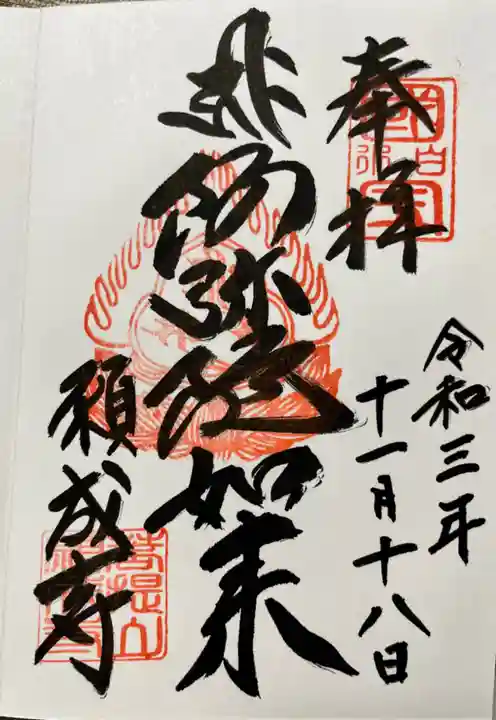 奉拝
令和三年
十一月十八日
阿弥陀如来
願成寺